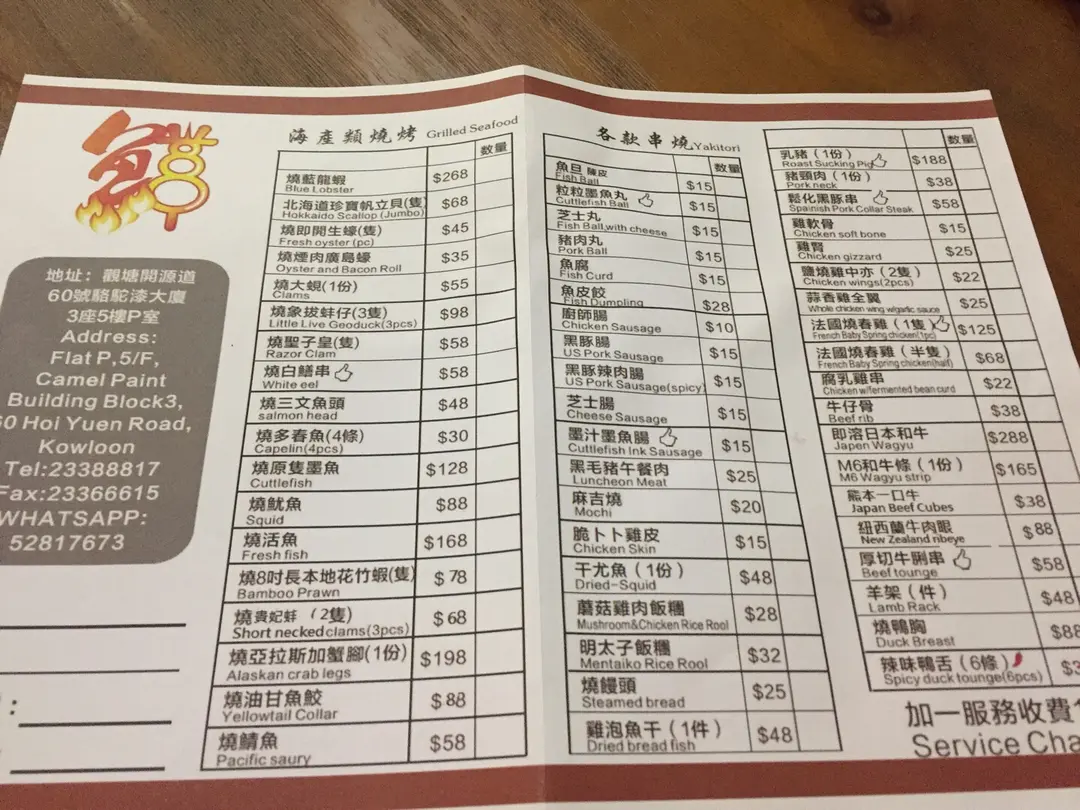 鮮
地址：觀塘開源道
60號駱駝漆大廈
3座5樓P室
Address:
Flat P,5/F,
Camel Paint
Building Block3,
60 Hoi Yuen Road,
Kowloon
Tel:23388817
Fax:23366615
WHATSAPP:
52817673
:
海產類燒烤 Grilled Seafood
數量
燒藍龍蝦 $268
Blue Lobster
北海道珍寶帆立貝(隻) $68
Hokkaido Scallop (Jumbo)
燒即開生蠔(隻) $45
Fresh oyster (pc)
燒煙肉廣島蠔 $35
Oyster and Bacon Roll
燒大蜆(1份) $55
Clams
燒象拔蚌仔(3隻) $98
Little Live Geoduck(3pcs)
燒聖子皇(隻) $58
Razor Clam
燒白鱔串 $58
White eel
燒三文魚頭 $48
salmon head
燒多春魚(4條) $30
Capelin(4pcs)
燒原隻墨魚 $128
Cuttlefish
燒魷魚 $88
Squid
燒活魚 $168
Fresh fish
燒8吋長本地花竹蝦(隻) $78
Bamboo Prawn
燒貴妃蚌（2隻） $68
Short necked clams(3pcs)
燒亞拉斯加蟹腳(1份) $198
Alaskan crab legs
燒油甘魚鮫 $88
Yellowtail Collar
燒鯖魚 $58
Pacific saury
各款串燒 Yakitori
數量
魚旦 陳皮 $15
Fish Ball
粒粒墨魚丸 $15
Cuttlefish Ball
芝士丸 $15
Fish Ball,with cheese
豬肉丸 $15
Pork Ball
魚腐 $15
Fish Curd
魚皮餃 $28
Fish Dumpling
廚師腸 $10
Chicken Sausage
黑豚腸 $15
US Pork Sausage
黑豚辣肉腸 $15
US Pork Sausage(spicy)
芝士腸 $15
Cheese Sausage
墨汁墨魚腸 $15
Cuttlefish Ink Sausage
黑毛豬午餐肉 $25
Luncheon Meat
麻吉燒 $20
Mochi
脆卜卜雞皮 $15
Chicken Skin
干尤魚（1份） $48
Dried-Squid
蘑菇雞肉飯糰 $28
Mushroom&Chicken Rice Rool
明太子飯糰 $32
Mentaiko Rice Rool
燒饅頭 $25
Steamed bread
雞泡魚干（1件） $48
Dried bread fish
數量
乳豬（1份） $188
Roast Sucking Pig
豬頸肉（1份） $38
Pork neck
鬆化黑豚串 $58
Spainish Pork Collar Steak
雞軟骨 $15
Chicken soft bone
雞腎 $25
Chicken gizzard
鹽燒雞中亦（2隻） $22
Chicken wings(2pcs)
蒜香雞全翼 $25
Whole chicken wing w/garlic sauce
法國燒春雞（1隻） $125
French Baby Spring chicken(1pc)
法國燒春雞（半隻） $68
French Baby Spring chicken(half)
腐乳雞串 $22
Chicken w/fermented bean curd
牛仔骨 $38
Beef rib
即溶日本和牛 $288
Japen Wagyu
M6和牛條（1份） $165
M6 Wagyu strip
熊本一口牛 $38
Japan Beef Cubes
紐西蘭牛肉眼 $88
New Zealand ribeye
厚切牛脷串 $58
Beef tounge
羊架（件） $48
Lamb Rack
燒鴨胸 $88
Duck Breast
辣味鴨舌（6條） $3
Spicy duck tounge(6pcs)
加一服務收費
Service Cha